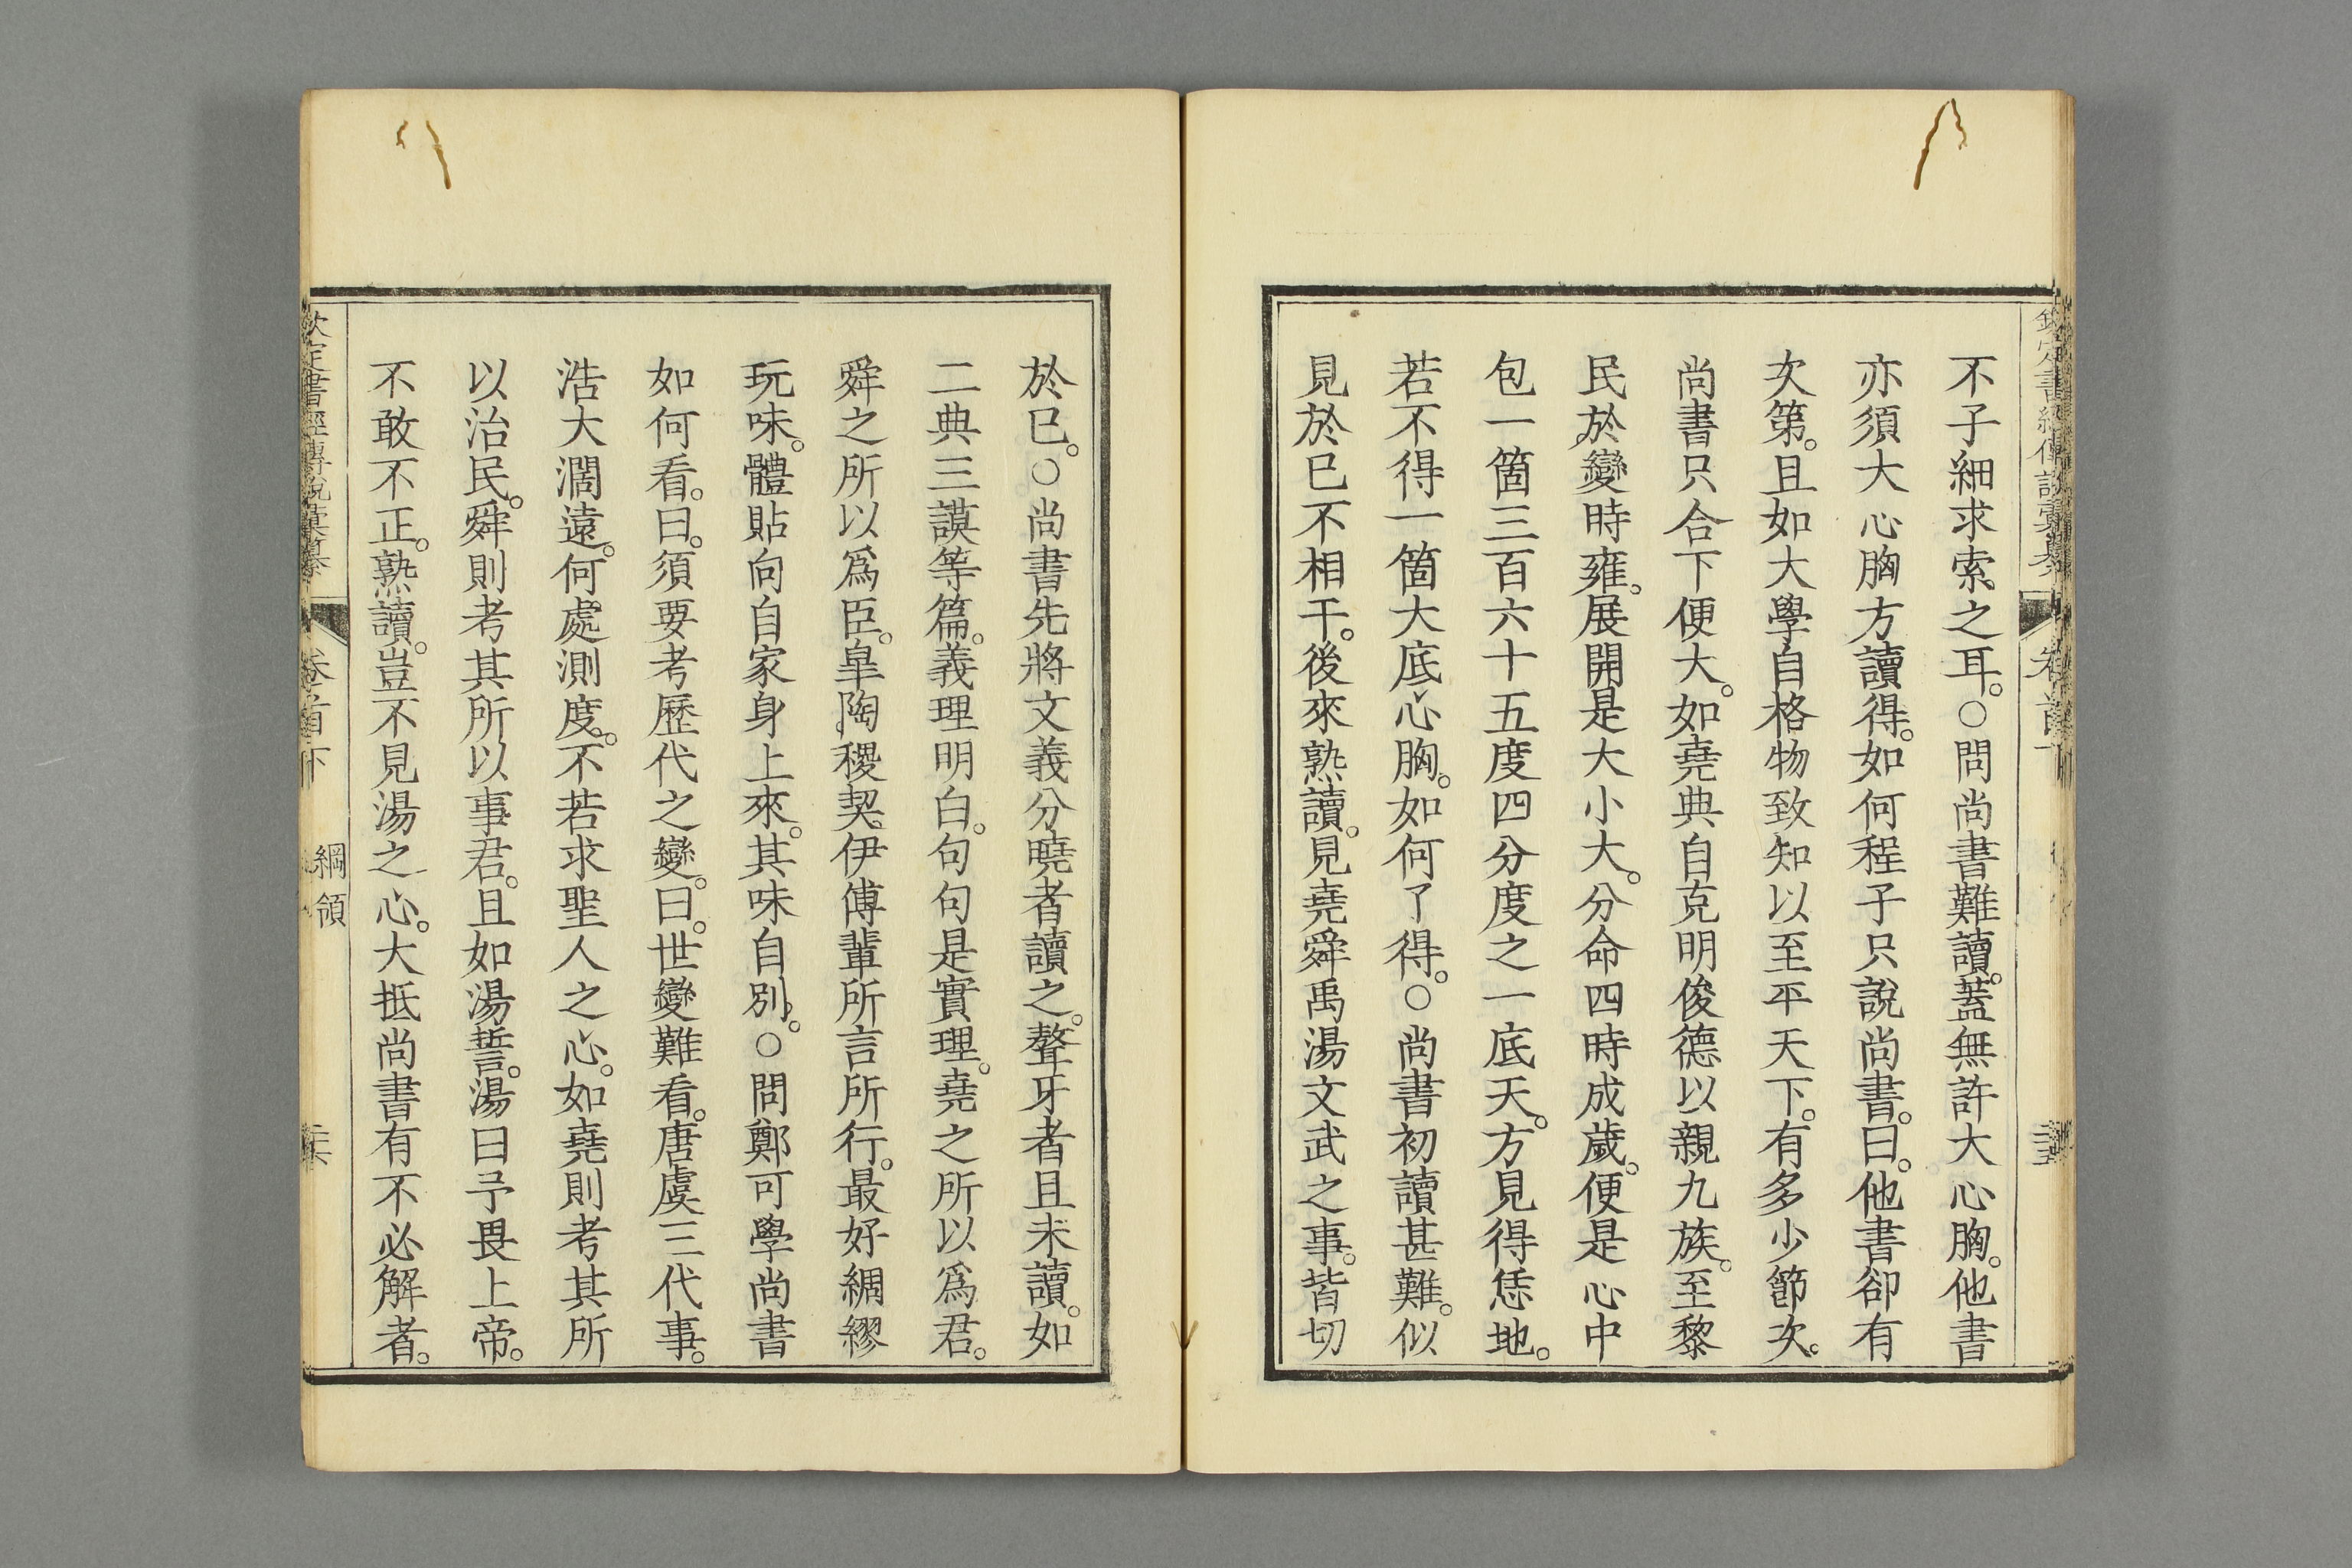 不子細求索之耳。○問尚書難讀。蓋無許大心胸。他書
亦須大心胸方讀得。如何程子只說尚書。曰。他書卻有
次第。且如大學自格物致知以至平天下。有多少節次。
尚書只合下便大。如堯典自克明俊德以親九族。至黎
民於變時雍。展開是大小大。分命四時成歲。便是心中
包一箇三百六十五度四分度之一底天。方見得恁地。
若不得一箇大底心胸。如何了得。○尚書初讀甚難。似
見於已不相干。後來熟讀。見堯舜禹湯文武之事。皆切
於已。○尚書先將文義分曉者讀之。聱牙者且未讀。如
二典三謨等篇。義理明白。句句是實理。堯之所以爲君。
舜之所以爲臣。皐陶稷契。伊傅輩所言所行。最好綢繆
玩味。體貼向自家身上來。其味自別。○問鄭可學尚書
如何看。曰。須要考歷代之變。曰。世變難看。唐虞三代事。
浩大濶遠。何處測度。不若求聖人之心。如堯則考其所
以治民。舜則考其所以事君。且如湯誓。湯曰予畏上帝。
不敢不正。熟讀。豈不見湯之心。大抵尚書有不必解者。
欽定書經傳說彙纂
卷首下
綱領